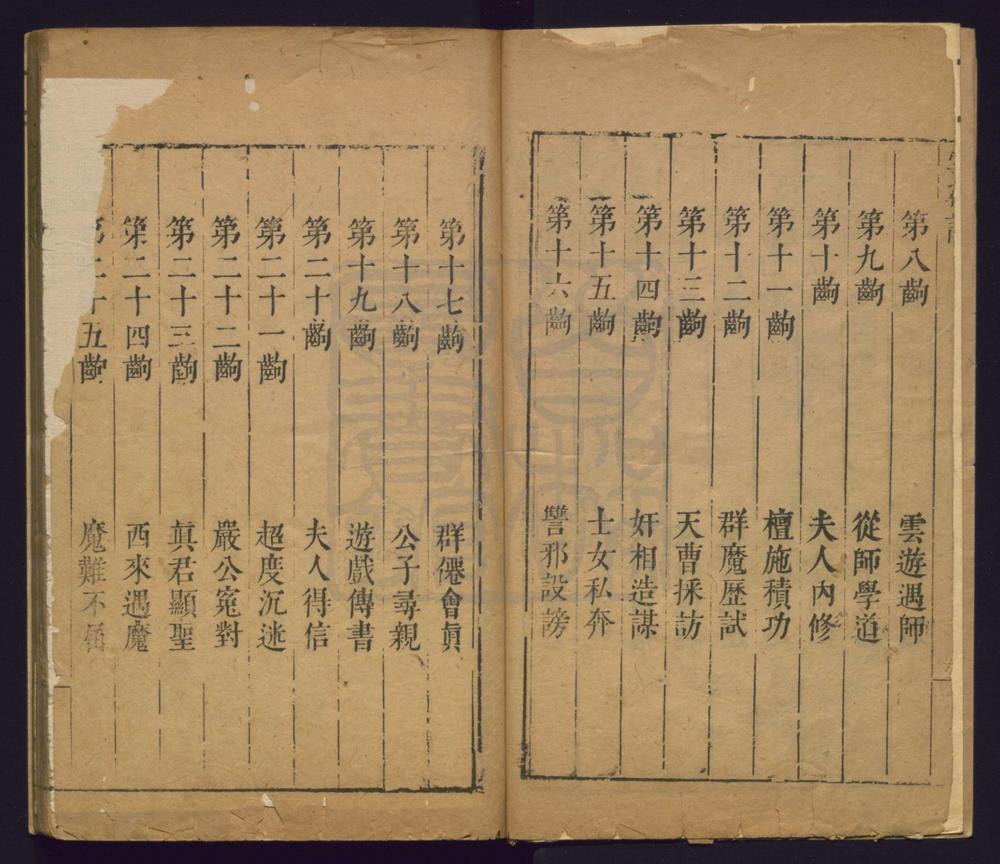 第八齣 雲遊遇師
第九齣 從師學道
第十齣 夫人內修
第十一齣 檀施積功
第十二齣 群魔歷試
第十三齣 天曹採訪
第十四齣 奸相造謀
第十五齣 士女私奔
第十六齣 讐邪設謗
第十七齣 群僊會眞
第十八齣 公子尋親
第十九齣 遊戲傳書
第二十齣 夫人得信
第二十一齣 超度沉迷
第二十二齣 嚴公寃對
第二十三齣 眞君顯聖
第二十四齣 西來遇魔
第二十五齣 魔難不